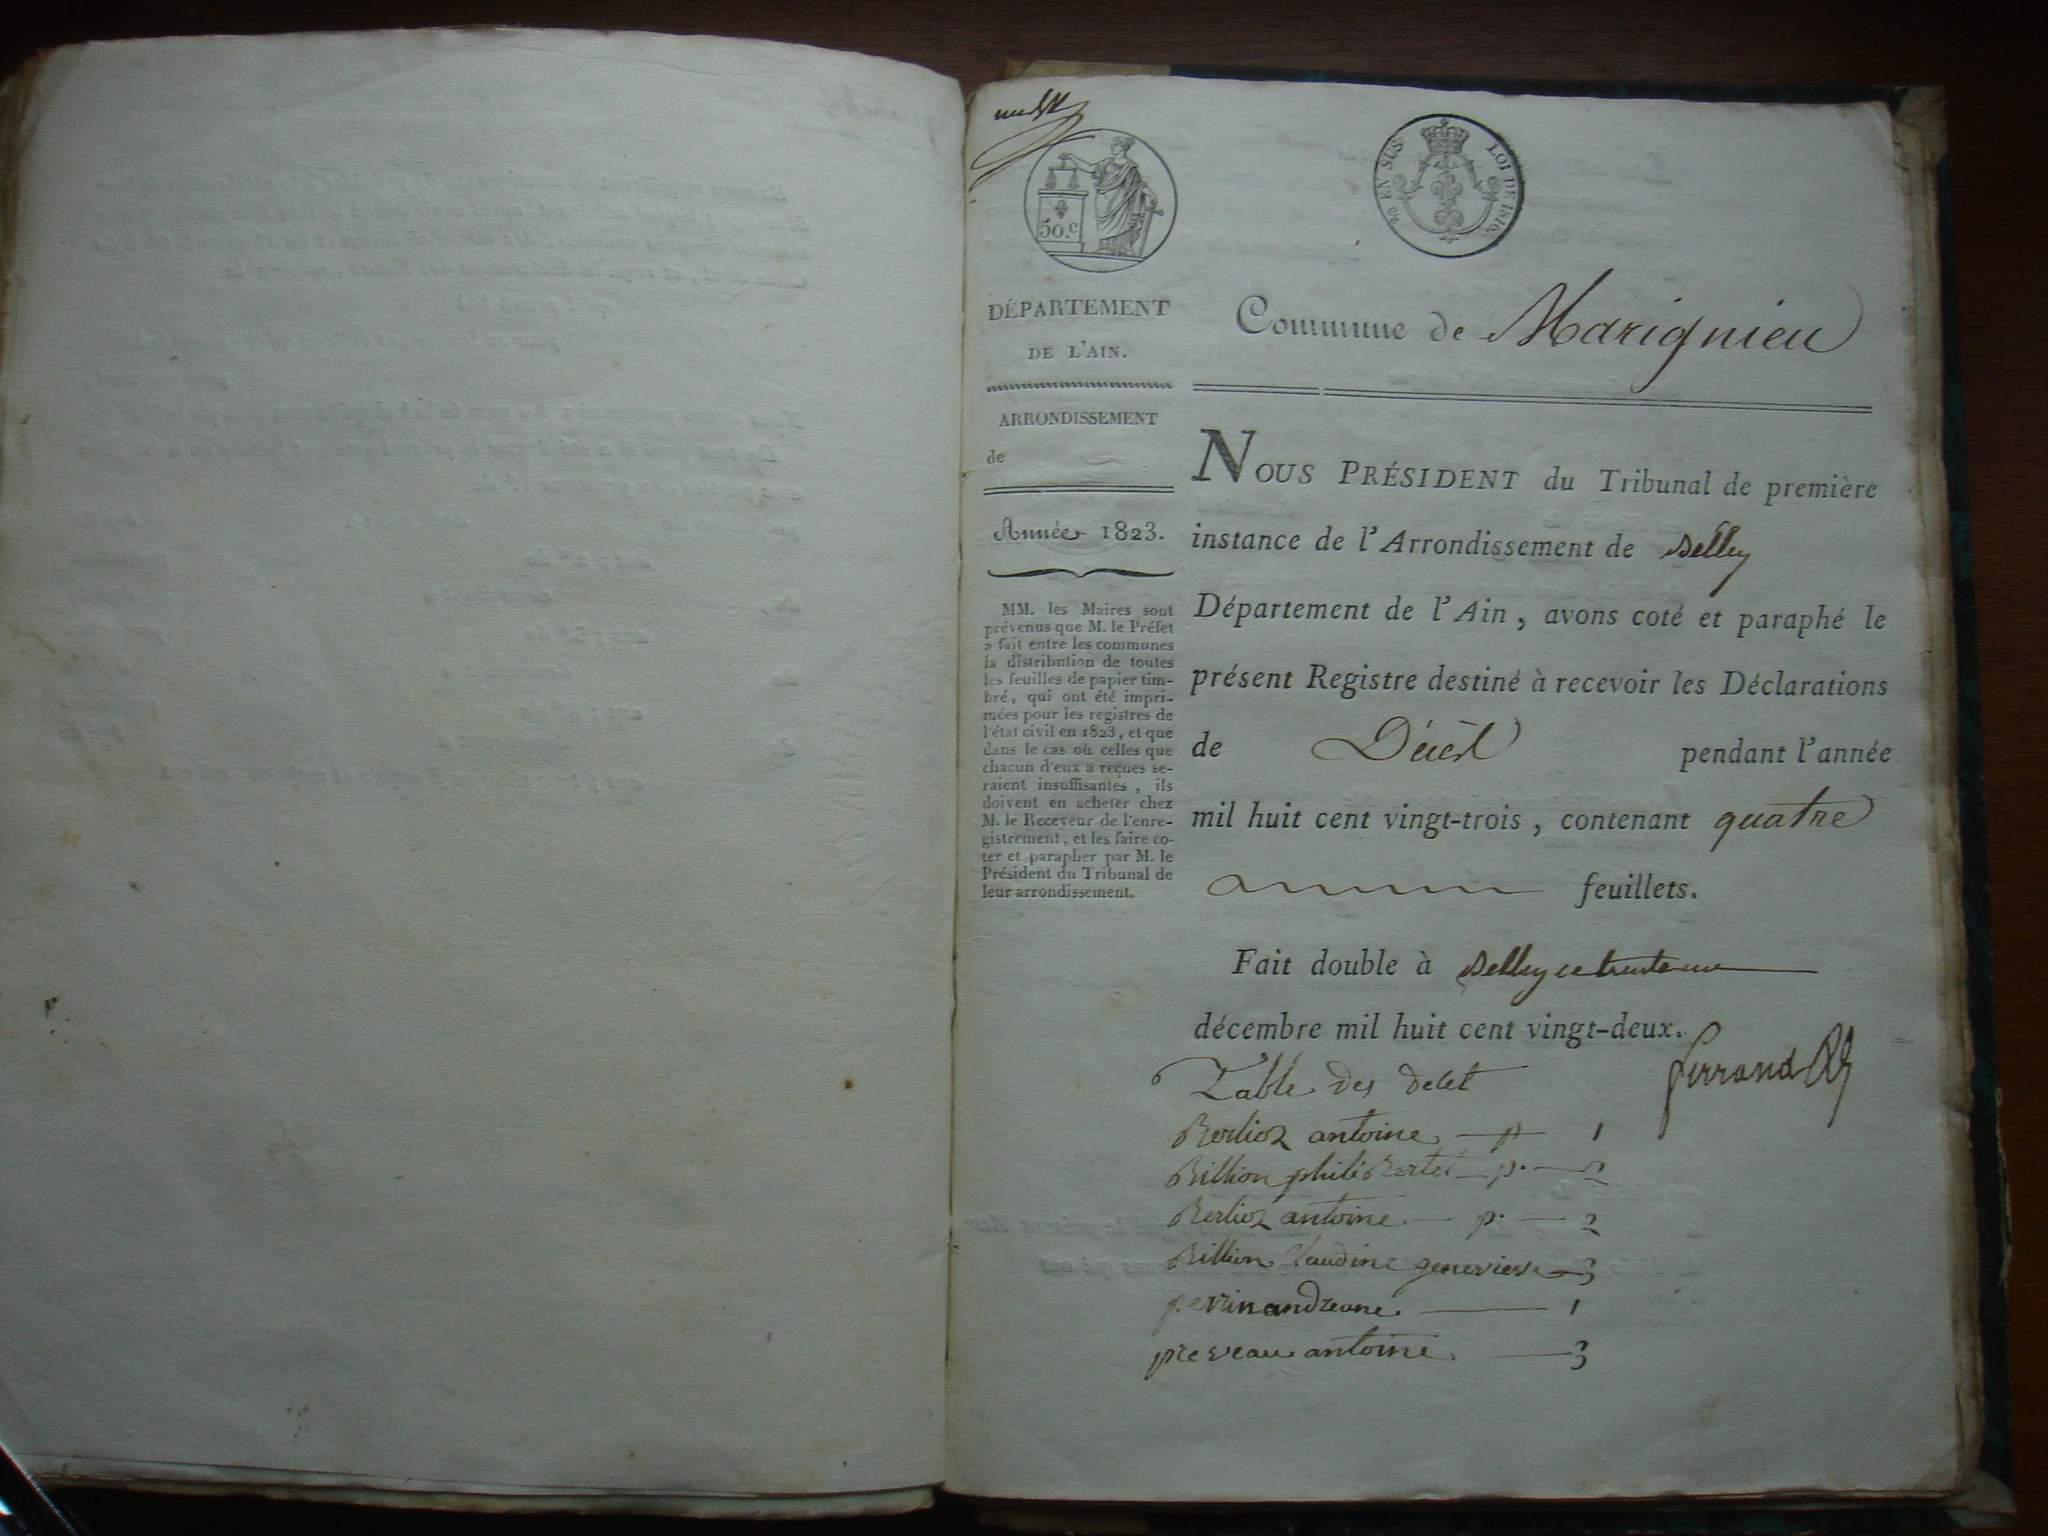 50.c
20 EN SUS
LOI DE 1816.
DÉPARTEMENT
DE L'AIN.
ARRONDISSEMENT
de
Année 1823.
MM. les Maires sont
prévenus que M. le Préfet
a fait entre les communes
la distribution de toutes
les feuilles de papier tim-
bré, qui ont été impri-
mées pour les registres de
l'état civil en 1823, et que
dans le cas où celles que
chacun d'eux a reçues se-
raient insuffisantes, ils
doivent en acheter chez
M. le Receveur de l'enre-
gistrement, et les faire co-
ter et parapher par M. le
Président du Tribunal de
leur arrondissement.
Commune de Marignieu
NOUS PRÉSIDENT du Tribunal de première
instance de l'Arrondissement de Belley
Département de l'Ain, avons coté et paraphé le
présent Registre destiné à recevoir les Déclarations
de Décès pendant l'année
mil huit cent vingt-trois, contenant quatre
feuillets.
Fait double à Belley ce trente un
décembre mil huit cent vingt-deux.
Ferrand
Table des decet
Berlioz antoine p 1
Billion philiberte p. 2
Berlioz antoine p. 2
Billion Claudine genevieve 3
perrin andreane 1
preveau antoine 3